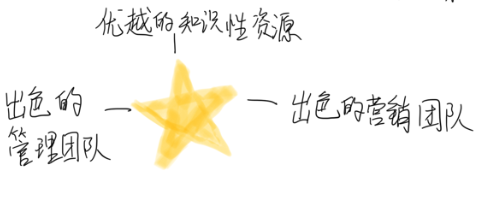 优越的知识性资源
出色的
管理团队
出色的营销团队